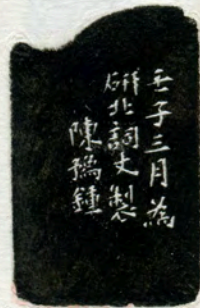 壬子三月為
硏北詞丈製
陳䂊鍾